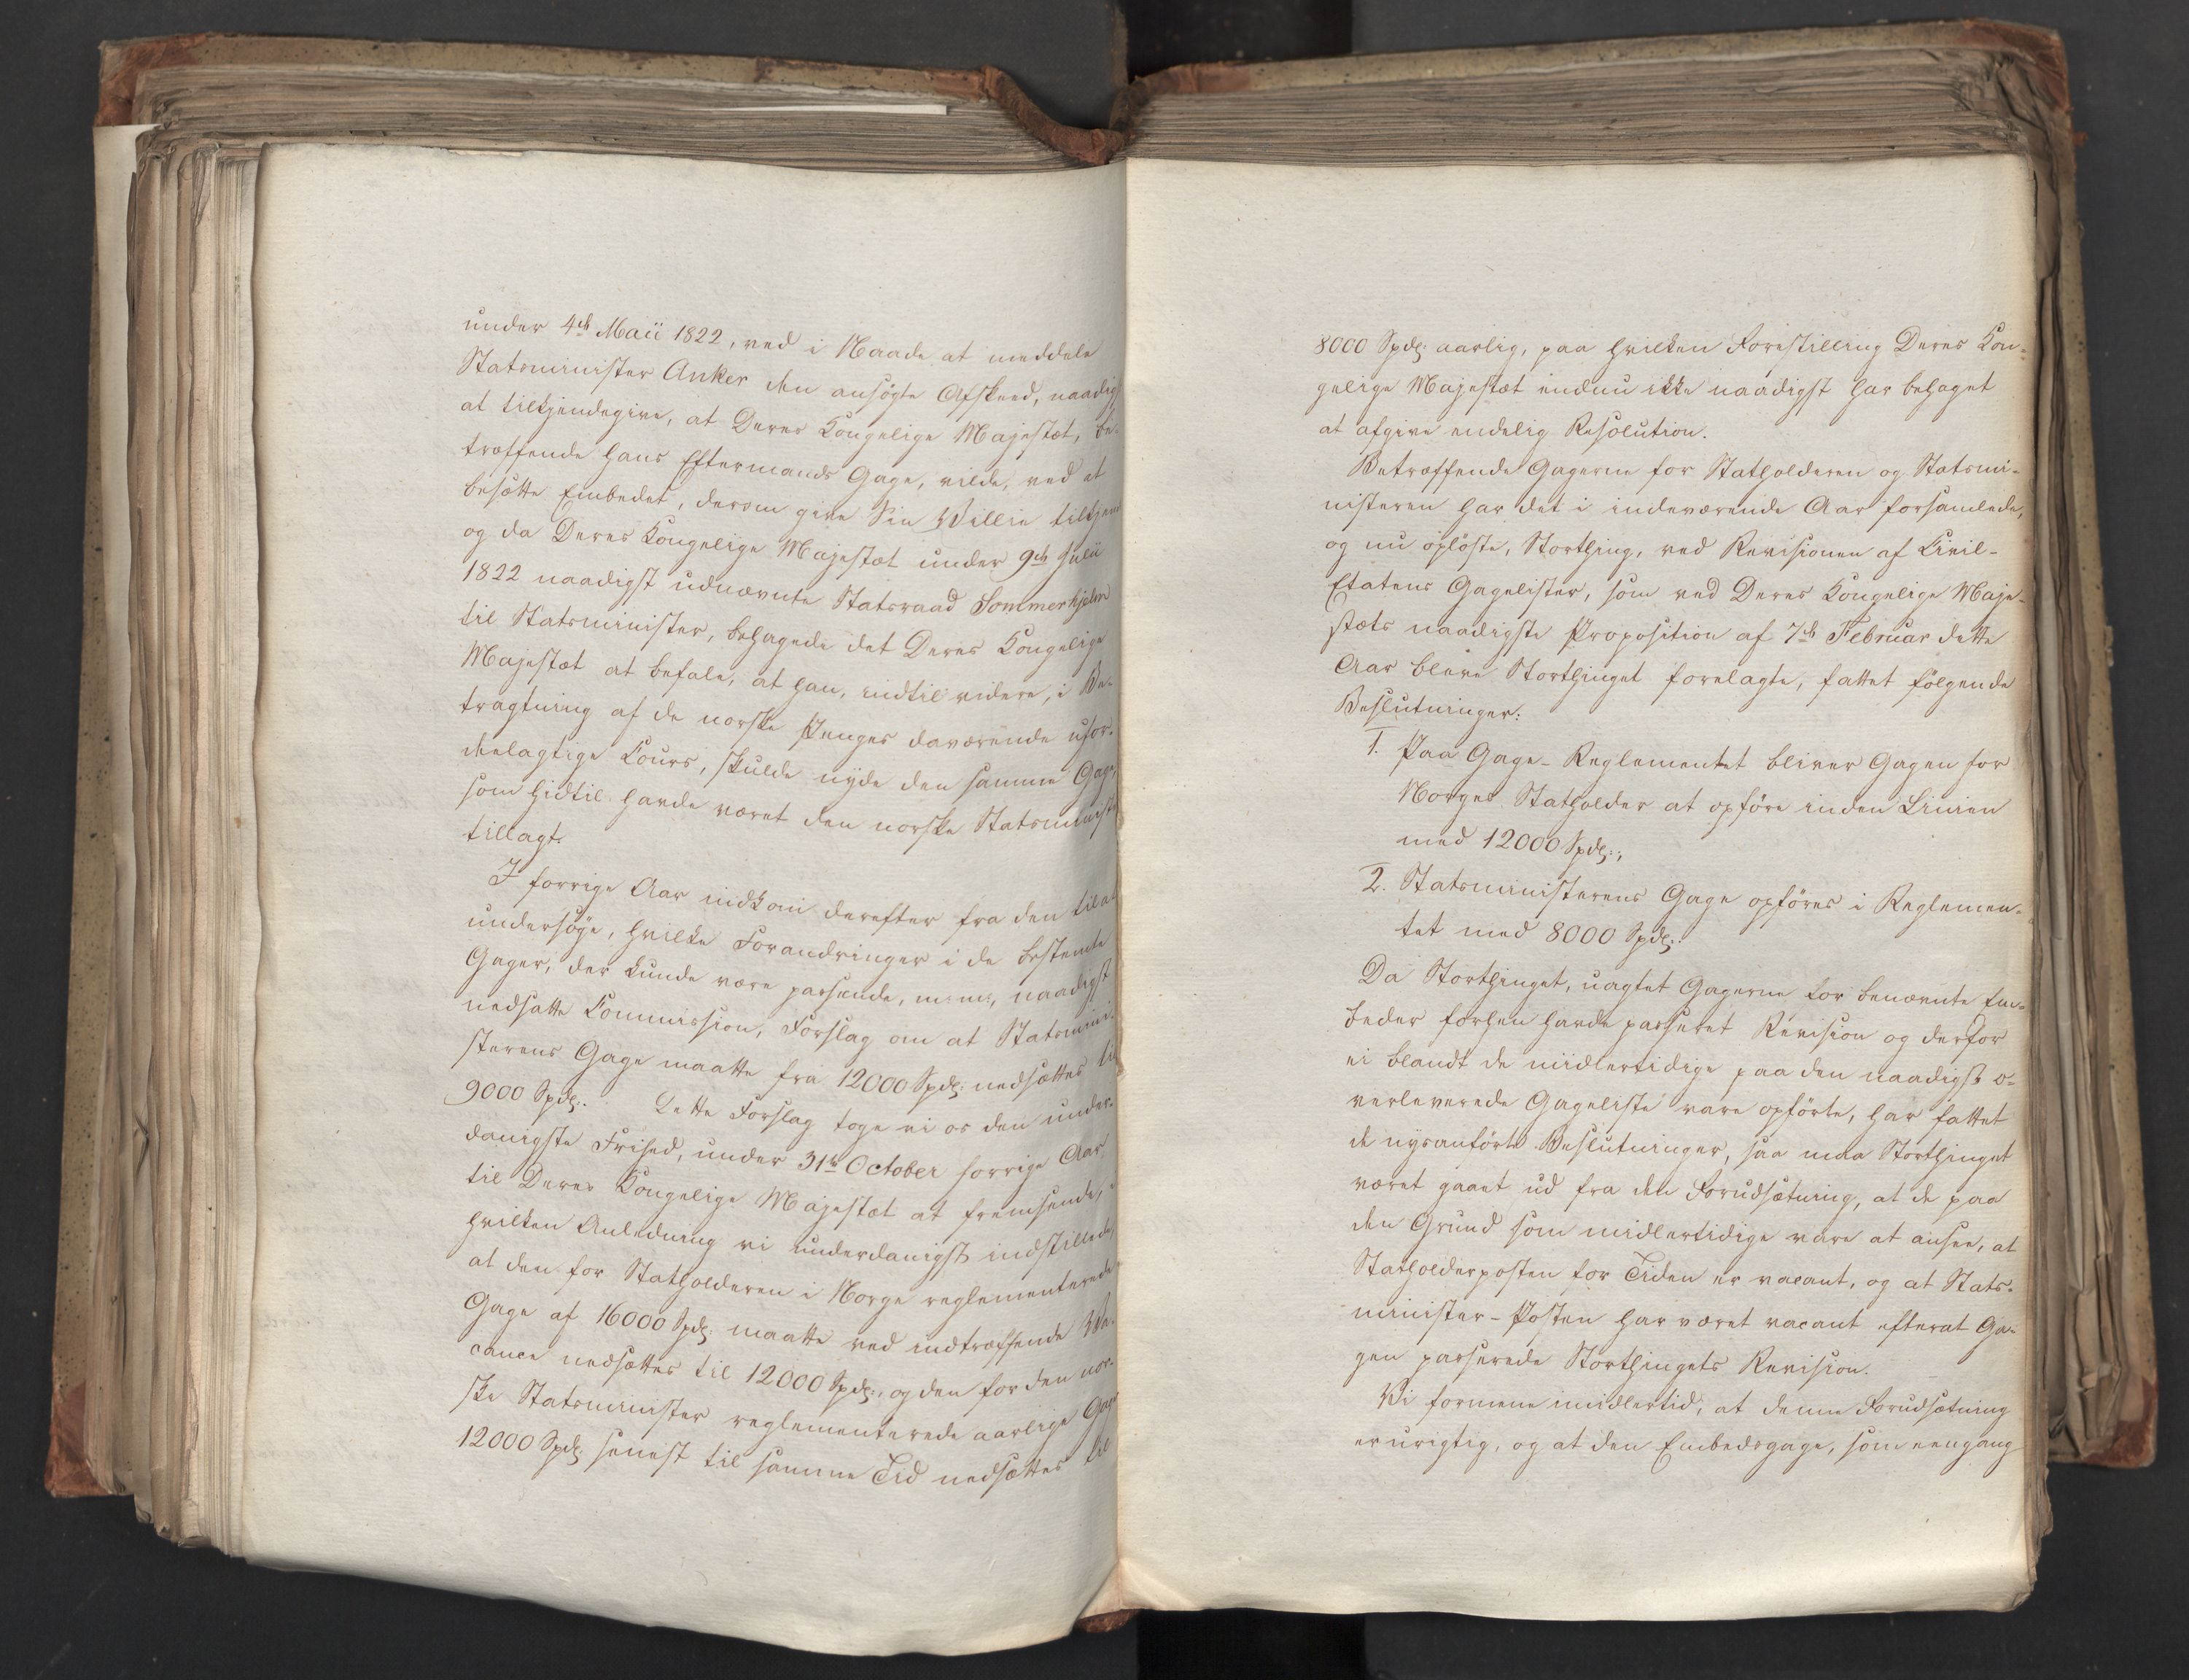 under 4de Maii 1822, ved i Naade at meddele
Statsminister Anker den ansögte Afskeed, naadigst
at tilkjendegive, at Deres Kongelige Majestæt, be-
træffende hans Eftermands Gage, vilde, ved at
besætte Embedet, derom give Sin Villie tilkjende
og da Deres Kongelige Majestæt under 9de Julii
1822 naadigst udnævnte Statsraad Sommerhjelm
til Statsminister, behagede det Deres Kongelige
Majestæt at befale, at han, indtil videre, i Be-
tragtning af de norske Penges daværende ufor-
deelagtige Cours, skulde nyde den samme Gage,
som hidtil havde været den norske Statsminister
tillagt.
I forrige Aar indkom derefter fra den til at
undersöge, hvilke Forandringer i de bestemte
Gager, der kunde være passende, m: m:, naadigst
nedsatte Commission, Forslag om at Statsmini-
sterens Gage maatte fra 12000 Spdl: nedsættes til
9000 Spdl:. Dette Forslag toge vi os den under-
danigste Frihed, under 31te October forrige Aar,
til Deres Kongelige Majestæt at fremsende, i
hvilken Anledning vi underdanigst indstillede,
at den for Statholderen i Norge reglementerede
Gage af 16000 Spdl: maatte ved indtræffende Va-
cance nedsættes til 12000 Spdl:, og den for den nor-
ske Statsminister reglementerede aarlige Gage
12000 Spdl: senest til samme Tid nedsættes til
8000 Spdl: aarlig, paa hvilken Forestilling Deres Kon-
gelige Majestæt endnu ikke naadigst har behaget
at afgive endelig Resolution.
Betræffende Gagerne for Statholderen og Statsmi-
nisteren har det i indeværende Aar forsamlede,
og nu oplöste, Storthing, ved Revisionen af Civil-
Etatens Gagelister, som ved Deres Kongelige Maje-
stæts naadigste Proposition af 7de Februar dette
Aar bleve Storthinget forelagte, fattet fölgende
Beslutninger:
1. Paa Gage-Reglementet bliver Gagen for
Norges Statholder at opföre inden Linien
med 12000 Spdl:;
2. Statsministerens Gage opföres i Reglemen-
tet med 8000 Spdl:.
Da Storthinget, uagtet Gagerne for benævnte Em-
beder forhen havde passeret Revision og derfor
ei blandt de midlertidige paa den naadigst o-
verleverede Gageliste vare opförte, har fattet
de nysanförte Beslutninger, saa maa Storthinget
været gaaet ud fra den Forudsætning, at de paa
den Grund som midlertidige vare at ansee, at
Statholderposten for Tiden er vacant, og at Stats-
minister-Posten har været vacant efterat Ga-
gen passerede Storthingets Revision.
Vi formene imidlertid, at denne Forudsætning
er urigtig, og at den Embedsgage, som eengang